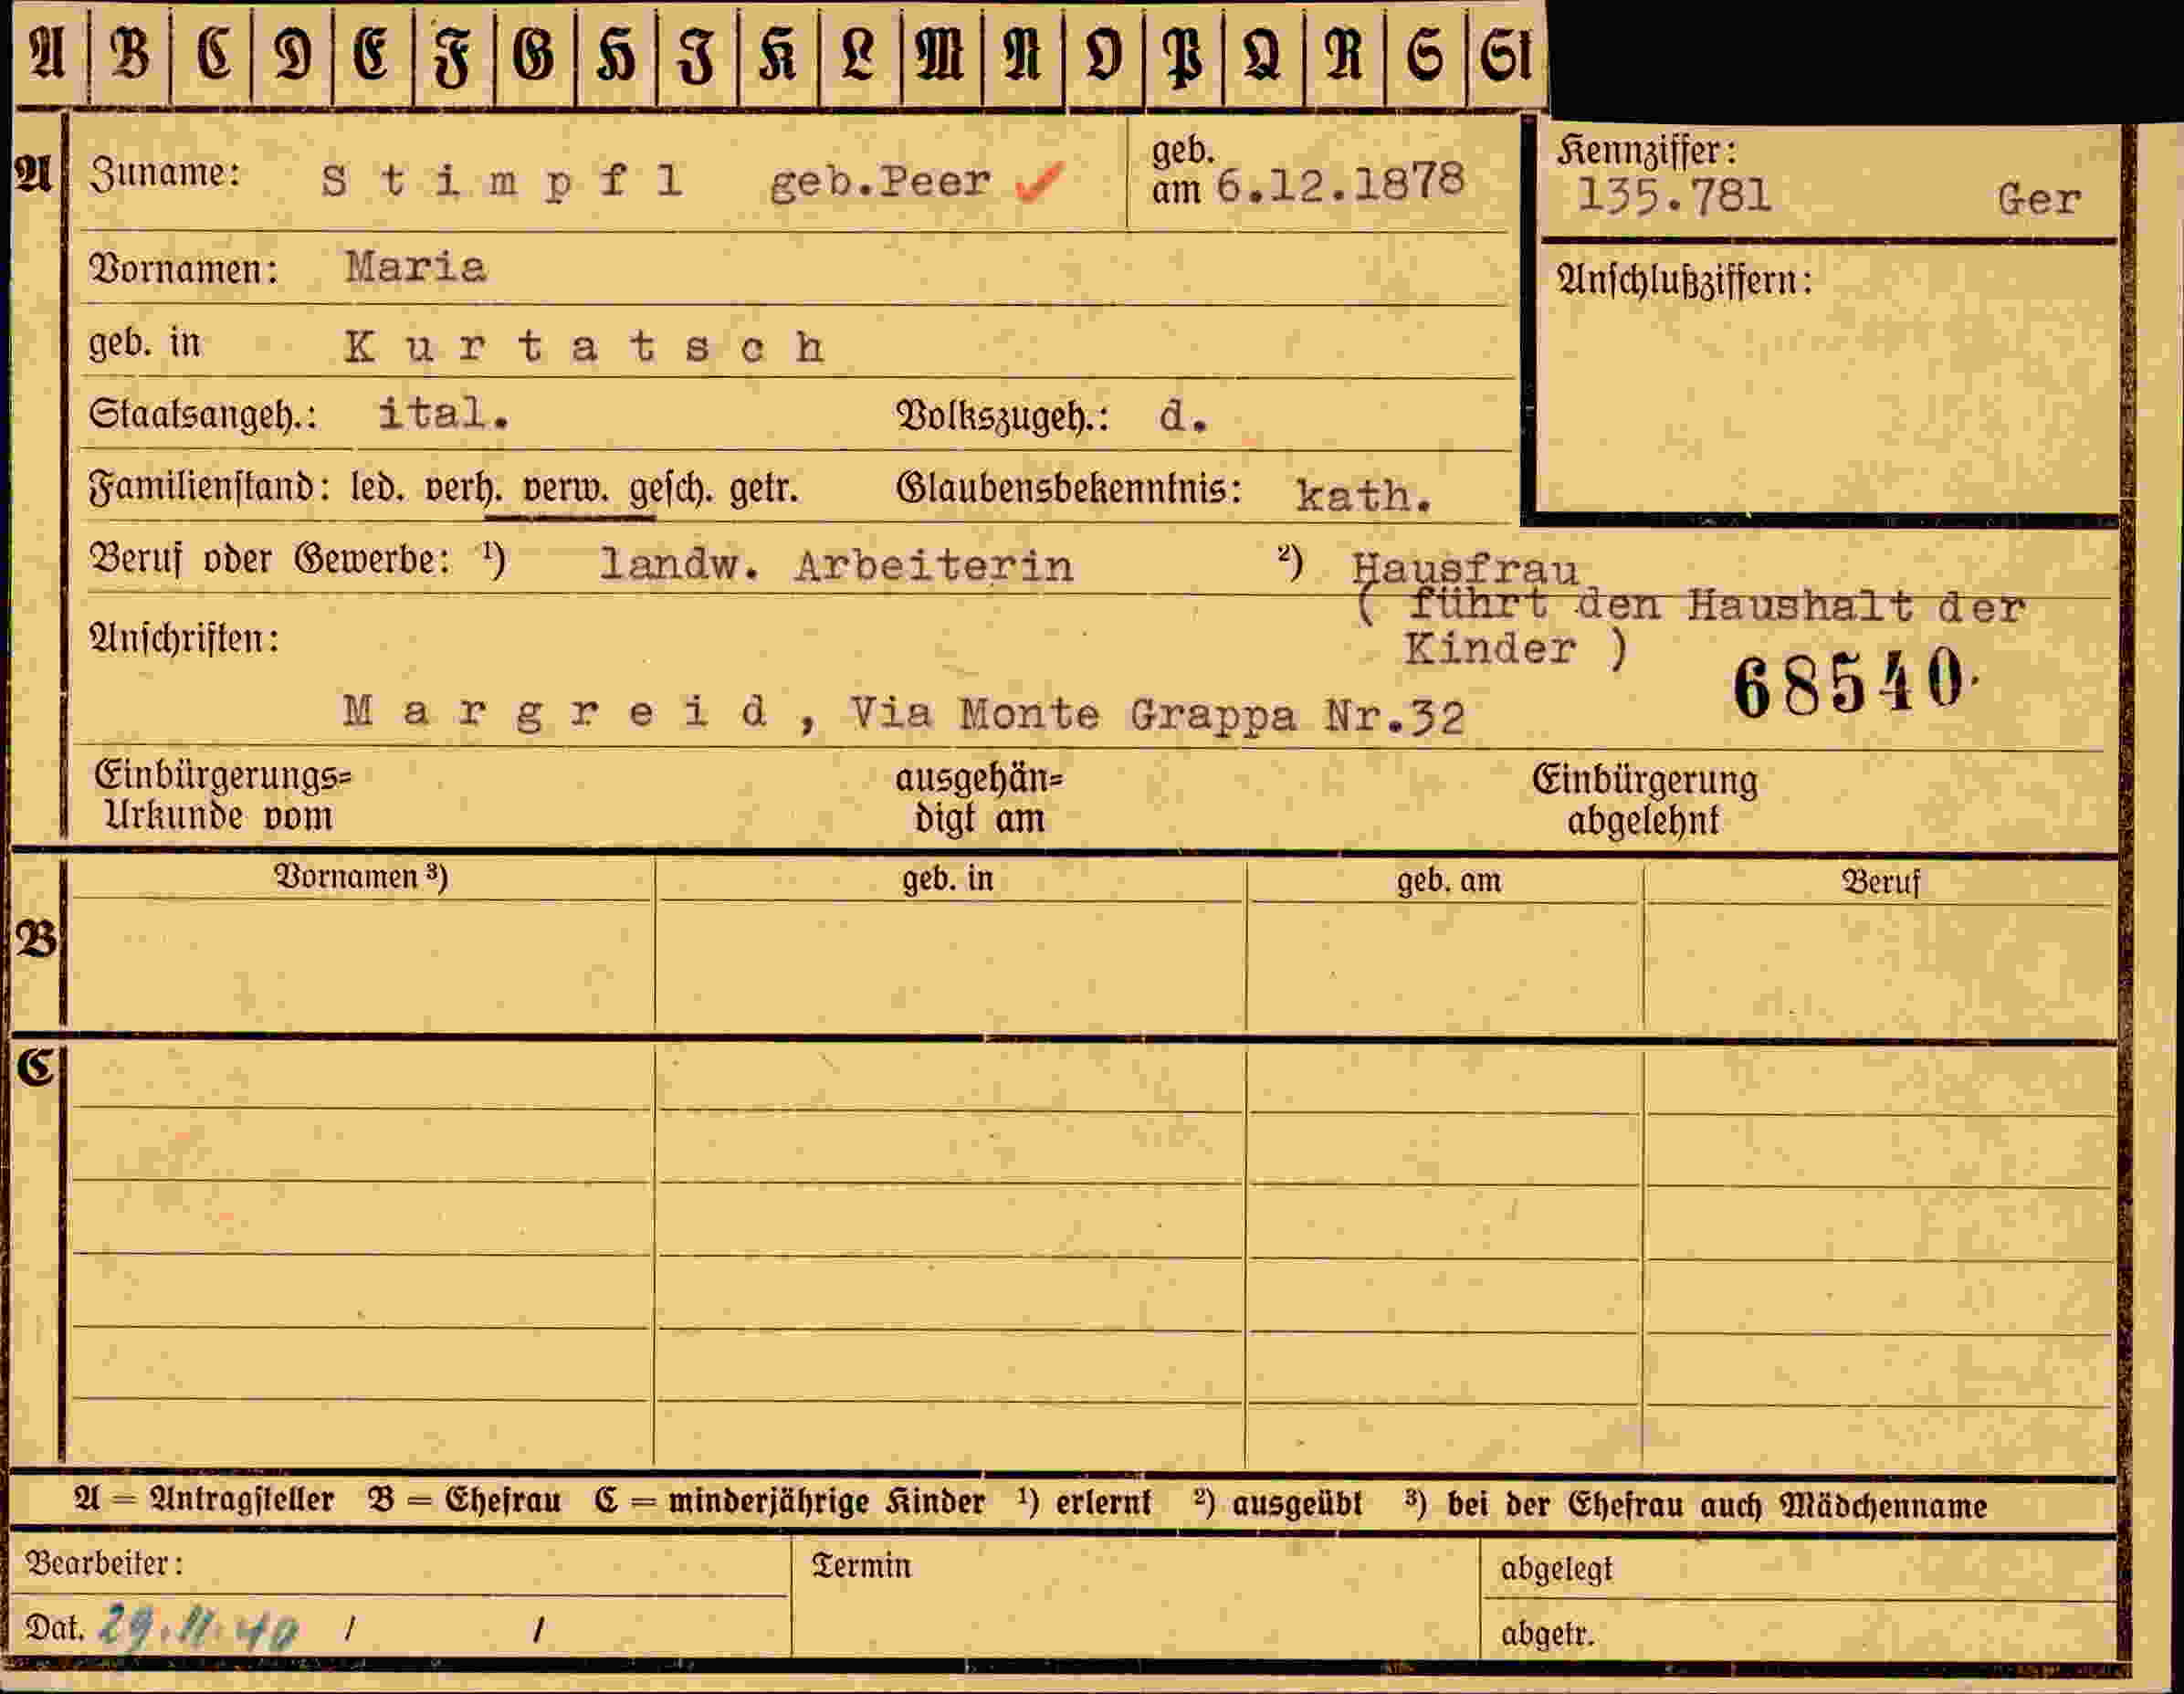 A B C D E F G H I K L M N O P Q R S St
A Zuname: Stimpfl geb.Peer ✓ geb. am 6.12.1878
Kennziffer: 135.781 Ger
Vornamen: Maria
Anschlußziffern:
geb. in Kurtatsch
Staatsangeh.: ital. Volkszugeh.: d.
Familienstand: led. verh. verw. gesch. getr. Glaubensbekenntnis: kath.
Beruf oder Gewerbe: ¹) landw. Arbeiterin ²) Hausfrau
( führt den Haushalt der
Anschriften: Kinder )
68540.
Margreid, Via Monte Grappa Nr.32
Einbürgerungs= ausgehän= Einbürgerung
Urkunde vom digt am abgelehnt
Vornamen ³) geb. in geb. am Beruf
B
C
A = Antragsteller B = Ehefrau C = minderjährige Kinder ¹) erlernt ²) ausgeübt ³) bei der Ehefrau auch Mädchenname
Bearbeiter: Termin abgelegt
Dat. 29.11.40 / / abgetr.